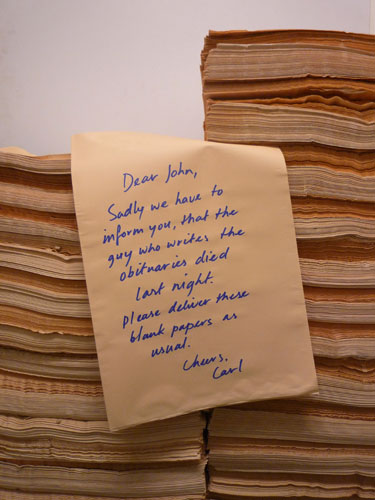 Dear John,
Sadly we have to
inform you, that the
guy who writes the
obituaries died
last night.
Please deliver these
blank papers as
usual.
Cheers,
Carl